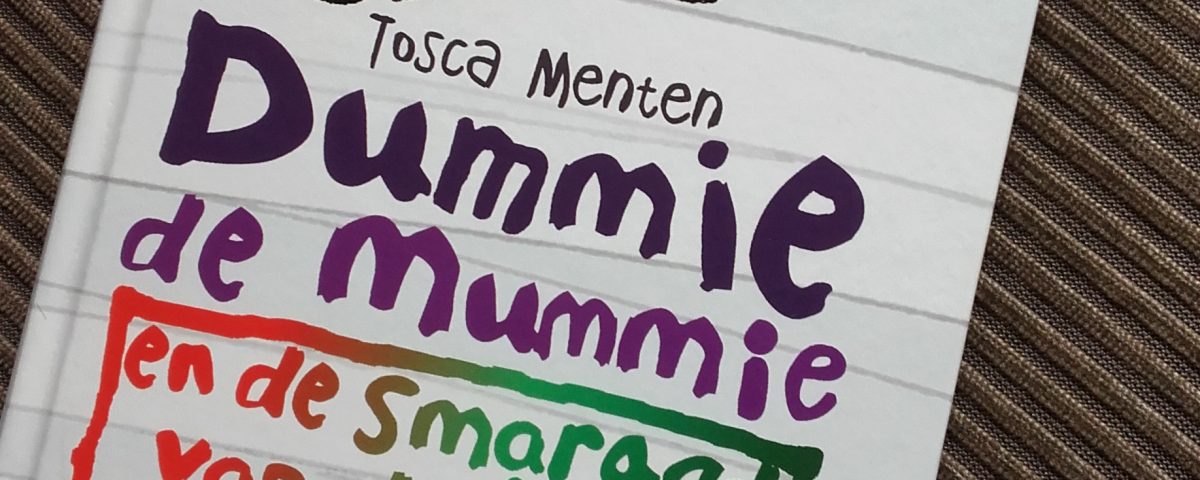 Tosca Menten
Dummie
de mummie
en de smaragd
van